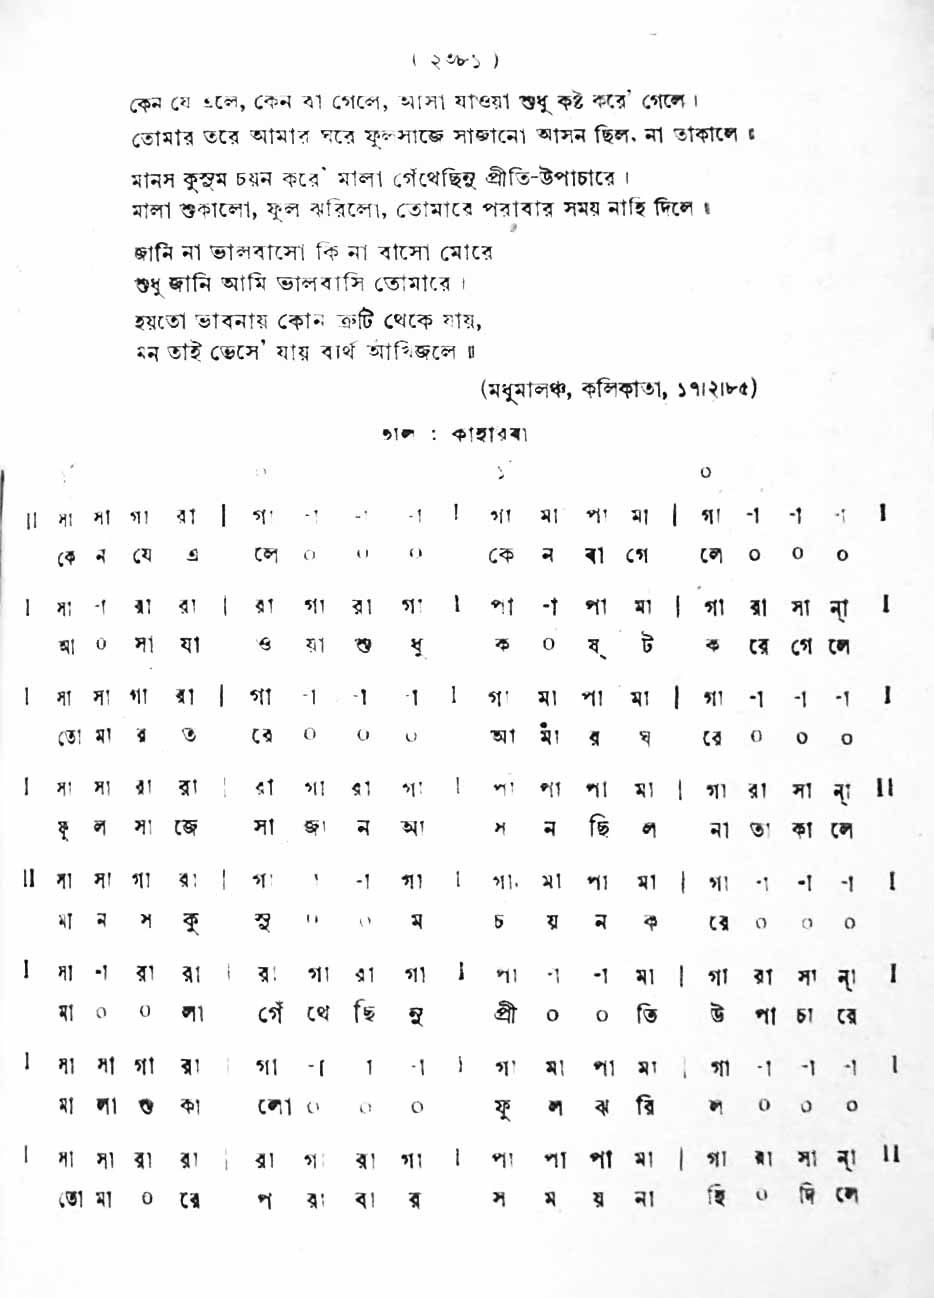 ( ২৩৮১ )
কেন যে এলে, কেন বা গেলে, আসা যাওয়া শুধু কষ্ট করে' গেলে ।
তোমার তরে আমার ঘরে ফুলসাজে সাজানো আসন ছিল. না তাকালে ॥
মানস কুসুম চয়ন করে' মালা গেঁথেছিনু প্রীতি-উপাচারে ।
মালা শুকালো, ফুল ঝরিলো, তোমারে পরাবার সময় নাহি দিলে ॥
জানি না ভালবাসো কি না বাসো মোরে
শুধু জানি আমি ভালবাসি তোমারে ।
হয়তো ভাবনায় কোন ত্রুটি থেকে যায়,
মন তাই ভেসে' যায় ব্যর্থ আঁখিজলে ॥
(মধুমালঞ্চ, কলিকাতা, ১৭।২।৮৫)
তাল : কাহারবা
১´ ০ ১´ ০
II সা সা গা রা | গা -া -া -া I গা মা পা মা | গা -া -া -া I
কে ন যে এ লে ০ ০ ০ কে ন বা গে লে ০ ০ ০
I সা -া রা রা | রা গা রা গা I পা -া পা মা | গা রা সা ন্‌া I
আ ০ সা যা ও য়া শু ধু ক ০ ষ্ ট ক রে গে লে
I সা সা গা রা | গা -া -া -া I গা মা পা মা | গা -া -া -া I
তো মা র ত রে ০ ০ ০ আ মাঁ র ঘ রে ০ ০ ০
I সা সা রা রা | রা গা রা গা I পা পা পা মা | গা রা সা ন্‌া II
ফু ল সা জে সা জা ন আ স ন ছি ল না তা কা লে
II সা সা গা রা | গা -া -া গা I গা. মা পা মা | গা -া -া -া I
মা ন স কু সু ০ ০ ম চ য় ন ক রে ০ ০ ০
I সা -া রা রা | রা গা রা গা I পা -া -া মা | গা রা সা ন্‌া I
মা ০ ০ লা গেঁ থে ছি নু প্রী ০ ০ তি উ পা চা রে
I সা সা গা রা | গা -া া -া I গা মা পা মা | গা -া -া -া I
মা লা শু কা লো ০ ০ ০ ফু ল ঝ রি ল ০ ০ ০
I সা সা রা রা | রা গা রা গা I পা পা পা মা | গা রা সা ন্‌া II
তো মা ০ রে প রা বা র স ম য় না হি ০ দি লে